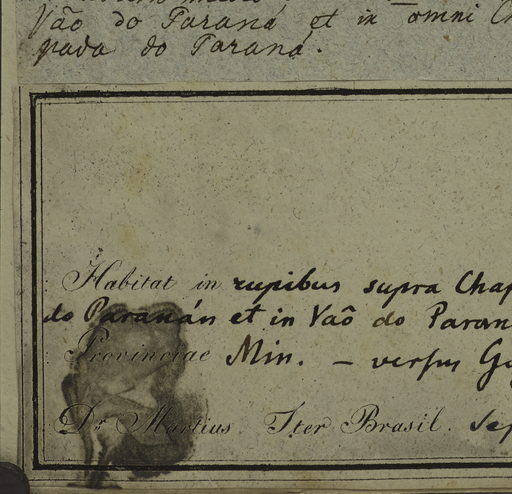 Vão do Paraná et in omni
pada do Paraná.
Habitat in rupibus supra Chap
do Paranán et in Vaõ do Paran
Provinciae Min. – versus
Dr. Martius. Iter Brasil. Sep